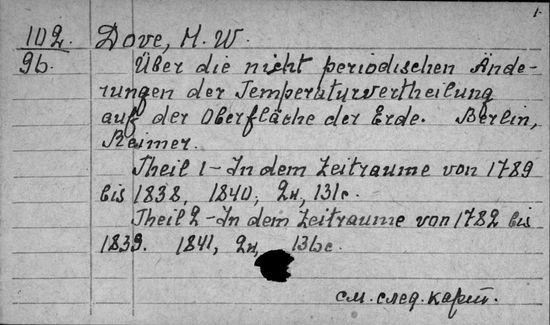 1.
102. Dove, H. W.
9b. Über die nicht periodischen Ände-
rungen der Temperaturvertheilung
auf der Oberfläche der Erde. Berlin,
Reimer.
Theil 1 - In dem Zeitraume von 1789
bis 1838, 1840, 2н, 131с.
Theil 2 - In dem Zeitraume von 1782 bis
1839. 1841, 2н, 136с.
см. след. карт.